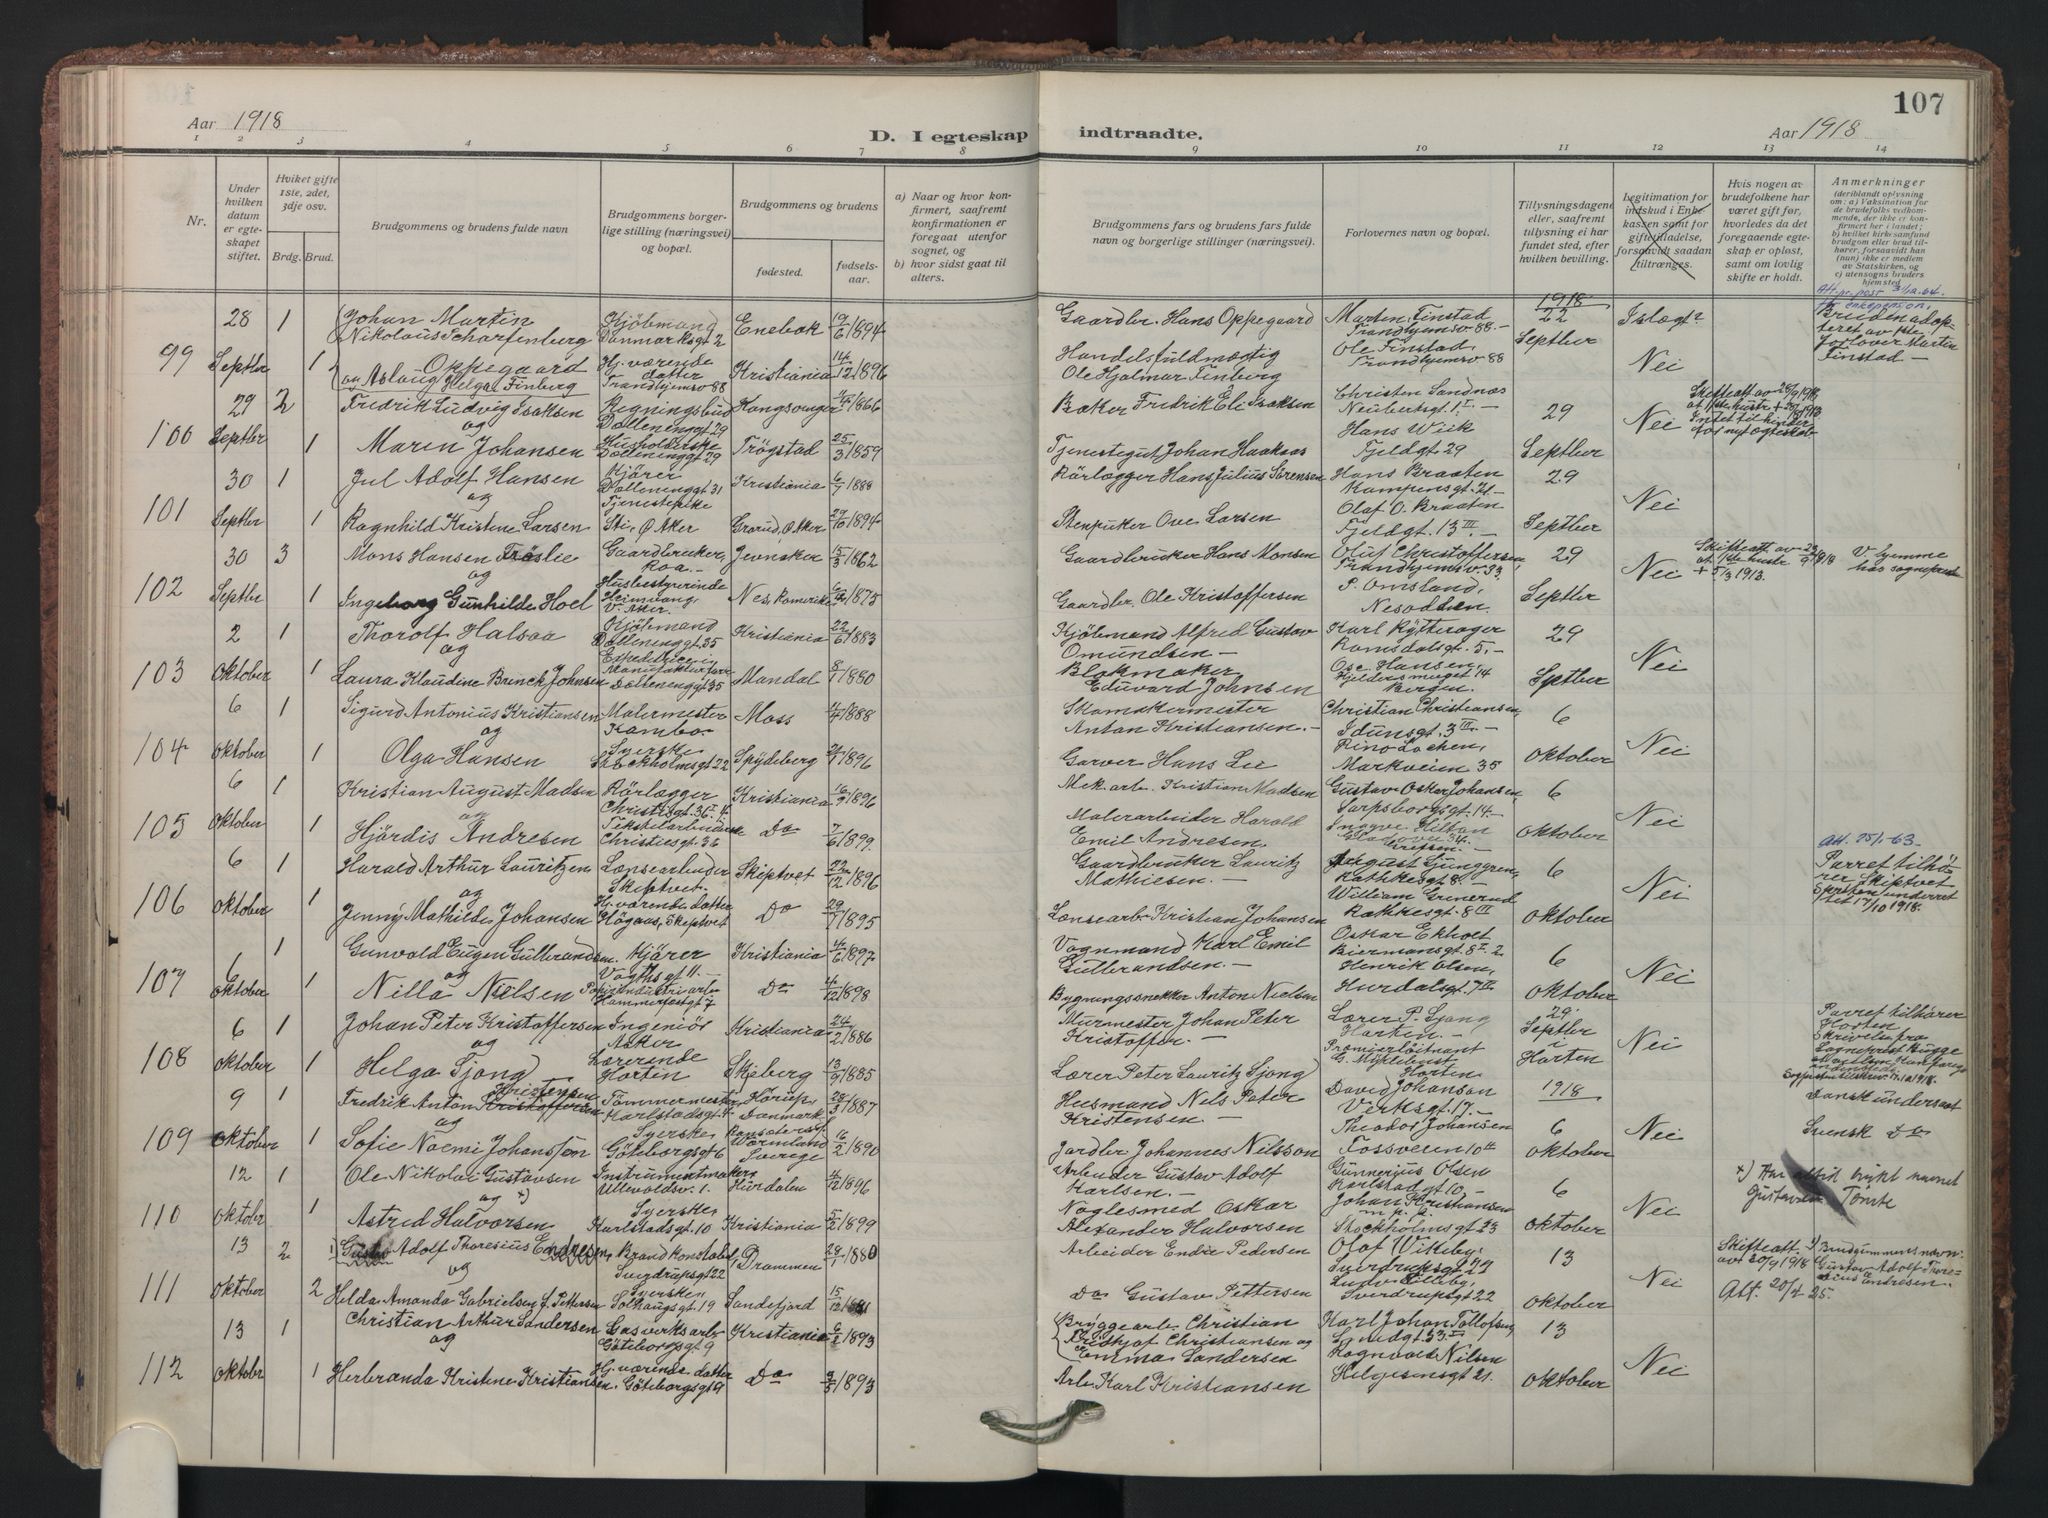 Aar 1918
D. I egteskap
indtraadte.
Aar 1918
107
1 2 3 4 5 6 7 8
9 10 11 12 13 14
Nr.
Under hvilken datum er egteskapet stiftet.
Hviket gifte 1ste, 2det, 3dje osv.
Brdg. Brud.
Brudgommens og brudens fulde navn
Brudgommens borgerlige stilling (næringsvei) og bopæl.
Brudgommens og brudens
fødested.
fødselsaar.
a) Naar og hvor konfirmert, saafremt konfirmationen er foregaat utenfor sognet, og
b) hvor sidst gaat til alters.
Brudgommens fars og brudens fars fulde navn og borgerlige stillinger (næringsvei).
Forlovernes navn og bopæl.
Tillysningsdagene eller, saafremt tillysning ei har fundet sted, efter hvilken bevilling.
Legitimation for indskud i Enkekassen samt for giftetilladelse, forsaavidt saadan tiltrænges.
Hvis nogen av brudefolkene har været gift før, hvorledes da det foregaaende egteskap er opløst, samt om lovlig skifte er holdt.
Anmerkninger
(deriblandt oplysning om: a) Vaksination for de brudefolks vedkommende, der ikke er konfirmert her i landet; b) hvilket kirkesamfund brudgom eller brud tilhører, forsaavidt han (hun) ikke er medlem av Statskirken, og c) atensogns bruders hjemsted
99 28 Septber 1
Johan Martin Nikolaus Scharfenberg Oppegaard
Kjöbmand Danmarksgt 2 Enebak 19/6 1894
Gaardbr. Hans Oppegaard
Marten Finstad Trondhjemsv 88.-
1918 22 Septber
og Aslaug Helga Finberg
1 Hj. værende datter Trondhjemsv 88 Kristiania 14/12 1896
Handelsfuldmægtig Ole Hjalmar Finberg
Ole Finstad, Trondhjemsv 88
Nei
Bruden adopteret av 1ste forlover Marten Finstad -
100 29 Septber 2
Fredrik Ludvig Isaksen
Dælenenggt 29 Kongsvinger 1866
Bæker Fredrik Eli Isaksen
Christen Sandnæs Neubertsgt. 1 I -
29 Septber Nei
og
1 Maren Johansen
Husholderske Dælenenggt 29 Trögstad 25/3 1859
Tjenestegut Johan Haakaas
Hans Wiik Fjeldgt. 29
101 30 Septber 1
Jul Adolf Hansen
Kjörer Dælenenggt 31 Kristiania 6/7 1888
Rörlægger Hans Julius Sörensen
Hans Braaten Kampensgt. 21-
29 Septber Nei
og
1 Ragnhild Kristine Larsen
Tjenestepike Sti, Ø. Aker Grorud, Ø. Aker 1894
Stenpuker Ove Larsen
Olaf O. Braaten Fjeldgt. 13 III
102 30 Septber 3
Mons Hansen Fröslie
Gaardbruker, Roa.- Jevnaker 15/3 1862
Gaardbruker Hans Monsen
Oluf Christoffersen, Trondhjemsv. 33.
29 Septber Nei
+ 5/3 1913.
V. hjemme hos sognepresten
og
1 Ingeborg Gunhilde Hoel
Husbestyrerinde V. Aker Nes, Romerike 1875
Gaardbr. Ole Kristoffersen
P. Omsland, Nesodden
103 2 Oktober 1
Thorolf Halsaa
Kjöbmand Dælenenggt 35 Kristiania 22/6 1883
Kjöbmand Alfred Gustav Omundsen -
Karl Rytterager Ramsdalsgt. 5.-
29 Septber Nei
og
1 Laura Klaudine Brinck Johnsen
Dælenenggt 35 Mandal 8/1 1880
Blokmaker Eduvard Johnsen
Ose Hansen, Bergen.
104 6 oktober 1
Sigurd Antonius Kristiansen
Malermester Kambo Moss 1888
Skomakermester Anton Kristiansen.-
Christian Christiansen, Idunsgt. 3 III.-
6 oktober Nei
og
1 Olga Hansen
Syerske Stockholmsgt 22 Spydeberg 1896
Garver Hans Lie
Rino Lochen, Markveien 35
105 6 oktober 1
Kristian August Madsen
Rörlægger Kristiania 16/9 1896
Mek. arb. Kristian Madsen
Gustav Oskar Johansen, Sarpsborgsgt. 14.-
6 oktober Nei
og
1 Hjördis Andresen
Christiesgt. 36 Do 7/6 1899.
Malerarbeider Harald Emil Andresen
106 6 oktober 1
Harald Arthur Lauritzen
Lænsearbeider Skiptvet. Skiptvet 22/12 1896
Gaardbruker Lauritz Mathiesen.-
August Ljunggren, Rathkesgt 8.-
6 oktober Nei
Att. 25/1-63
Parret tilhörer Skiptvet
17/10 1918.
og
1 Jenny Mathilde Johansen
Hj. værende datter Högaas, Skiptvet Do 29/1 1895
Lænsearb. Kristian Johansen
William Grenerud Rathkesgt. 8 III
107 6 oktober 1
Gunvald Eugen Gulbrandsen.
Kjörer Vogtsgt 11.- Kristiania 4/6 1897
Vognmand Karl Emil Gulbrandsen.-
Oskar Ekholt Biermansgt. 8 I. 2
6 oktober Nei
og
1 Nilla Nielsen
Hammerfestgt 7 Do 4/12 1898
Bygningssnekker Anton Nielsen
Henrik Olsen, Hurdalsgt. 7 II
108 6 oktober 1
Johan Peter Kristoffersen
Ingeniör Asker Kristiania 24/2 1886
Murmester Johan Peter Kristoffersen.
Lærer P. Sjong Horten.
29 Septber i Horten Nei
Parret tilhörer Horten
Skrivelse fra Sogneprest
og
1 Helga Sjong
Lærerinde Horten Skjeberg 13/9 1885
Lærer Peter Lauritz Sjong
Premierlöitnant G. Myklebust Horten
109 9 oktober 1
Fredrik Anton Kristoffersen Kristensen
Tömmermester Karlstadsgt. 4 Danmark 28/3 1887
Husmand Nels Peter Kristensen.-
David Johansen Verksgt. 17.-
1918 6 oktober Nei
Dansk undersaat
og
1 Sofie Naemi Johansson
Syerske Göteborgsgt 6 Wärmland Sverige 16/2 1890
Jordbr Johannes Nilsson
Theodor Johansen Fossveien 10 III
Svensk Do
110 12 oktober 1
Ole Nikolai Gustavsen
Instrumentmaker Ullevoldsv. 1. Hurdalen 4/12 1896
Arbeider Gustav Adolf Karlsen.-
Gunnerius Olsen Karlstadgt 10-
6 oktober Nei
x) Har altid brukt navnet Gustavsen Tömte
og x)
1 Astrid Halvorsen
Syerske Karlstadsgt. 10 Kristiania 1899
Naglesmed Oskar Alexander Halvorsen
Johan Kristiansen Stockholmsgt 23
111 13 oktober 2
1) Gustav Adolf Thoresius Endresen
Brandkonstabel, Sverdrupsgt 22 Drammen 28/1 1880
Arbeider Endre Pedersen
Olaf Wikeby, Sverdrupsgt 22
13 oktober Nei
Skifteatt. av 30/9 1918
1) Brudgommens navn: Gustav Adolf Thoresius Andresen.
Att. 20/4 25.
og
2 Helda Amanda Gabrielsen f. Pettersen
Syerske Solhaugsgt. 19 Sandefjord
Do Gustav Pettersen
Sverdrupsgt 22
112 13 oktober 1
Christian Arthur Sandersen
Gasverksarb. Göteborgsgt 9 Kristiania 1893
Bryggearb. Christian Fridthjof Christiansen og Emma Sandersen
Karl Johan Tollofsen, Lundgt 33.II
13 oktober Nei
og
1 Herbranda Kristene Kristiansen
Hj. værende datter Göteborgsgt 9 Do 1893
Arb. Karl Kristiansen
Ragnvald Nilsen Helgesensgt 21.